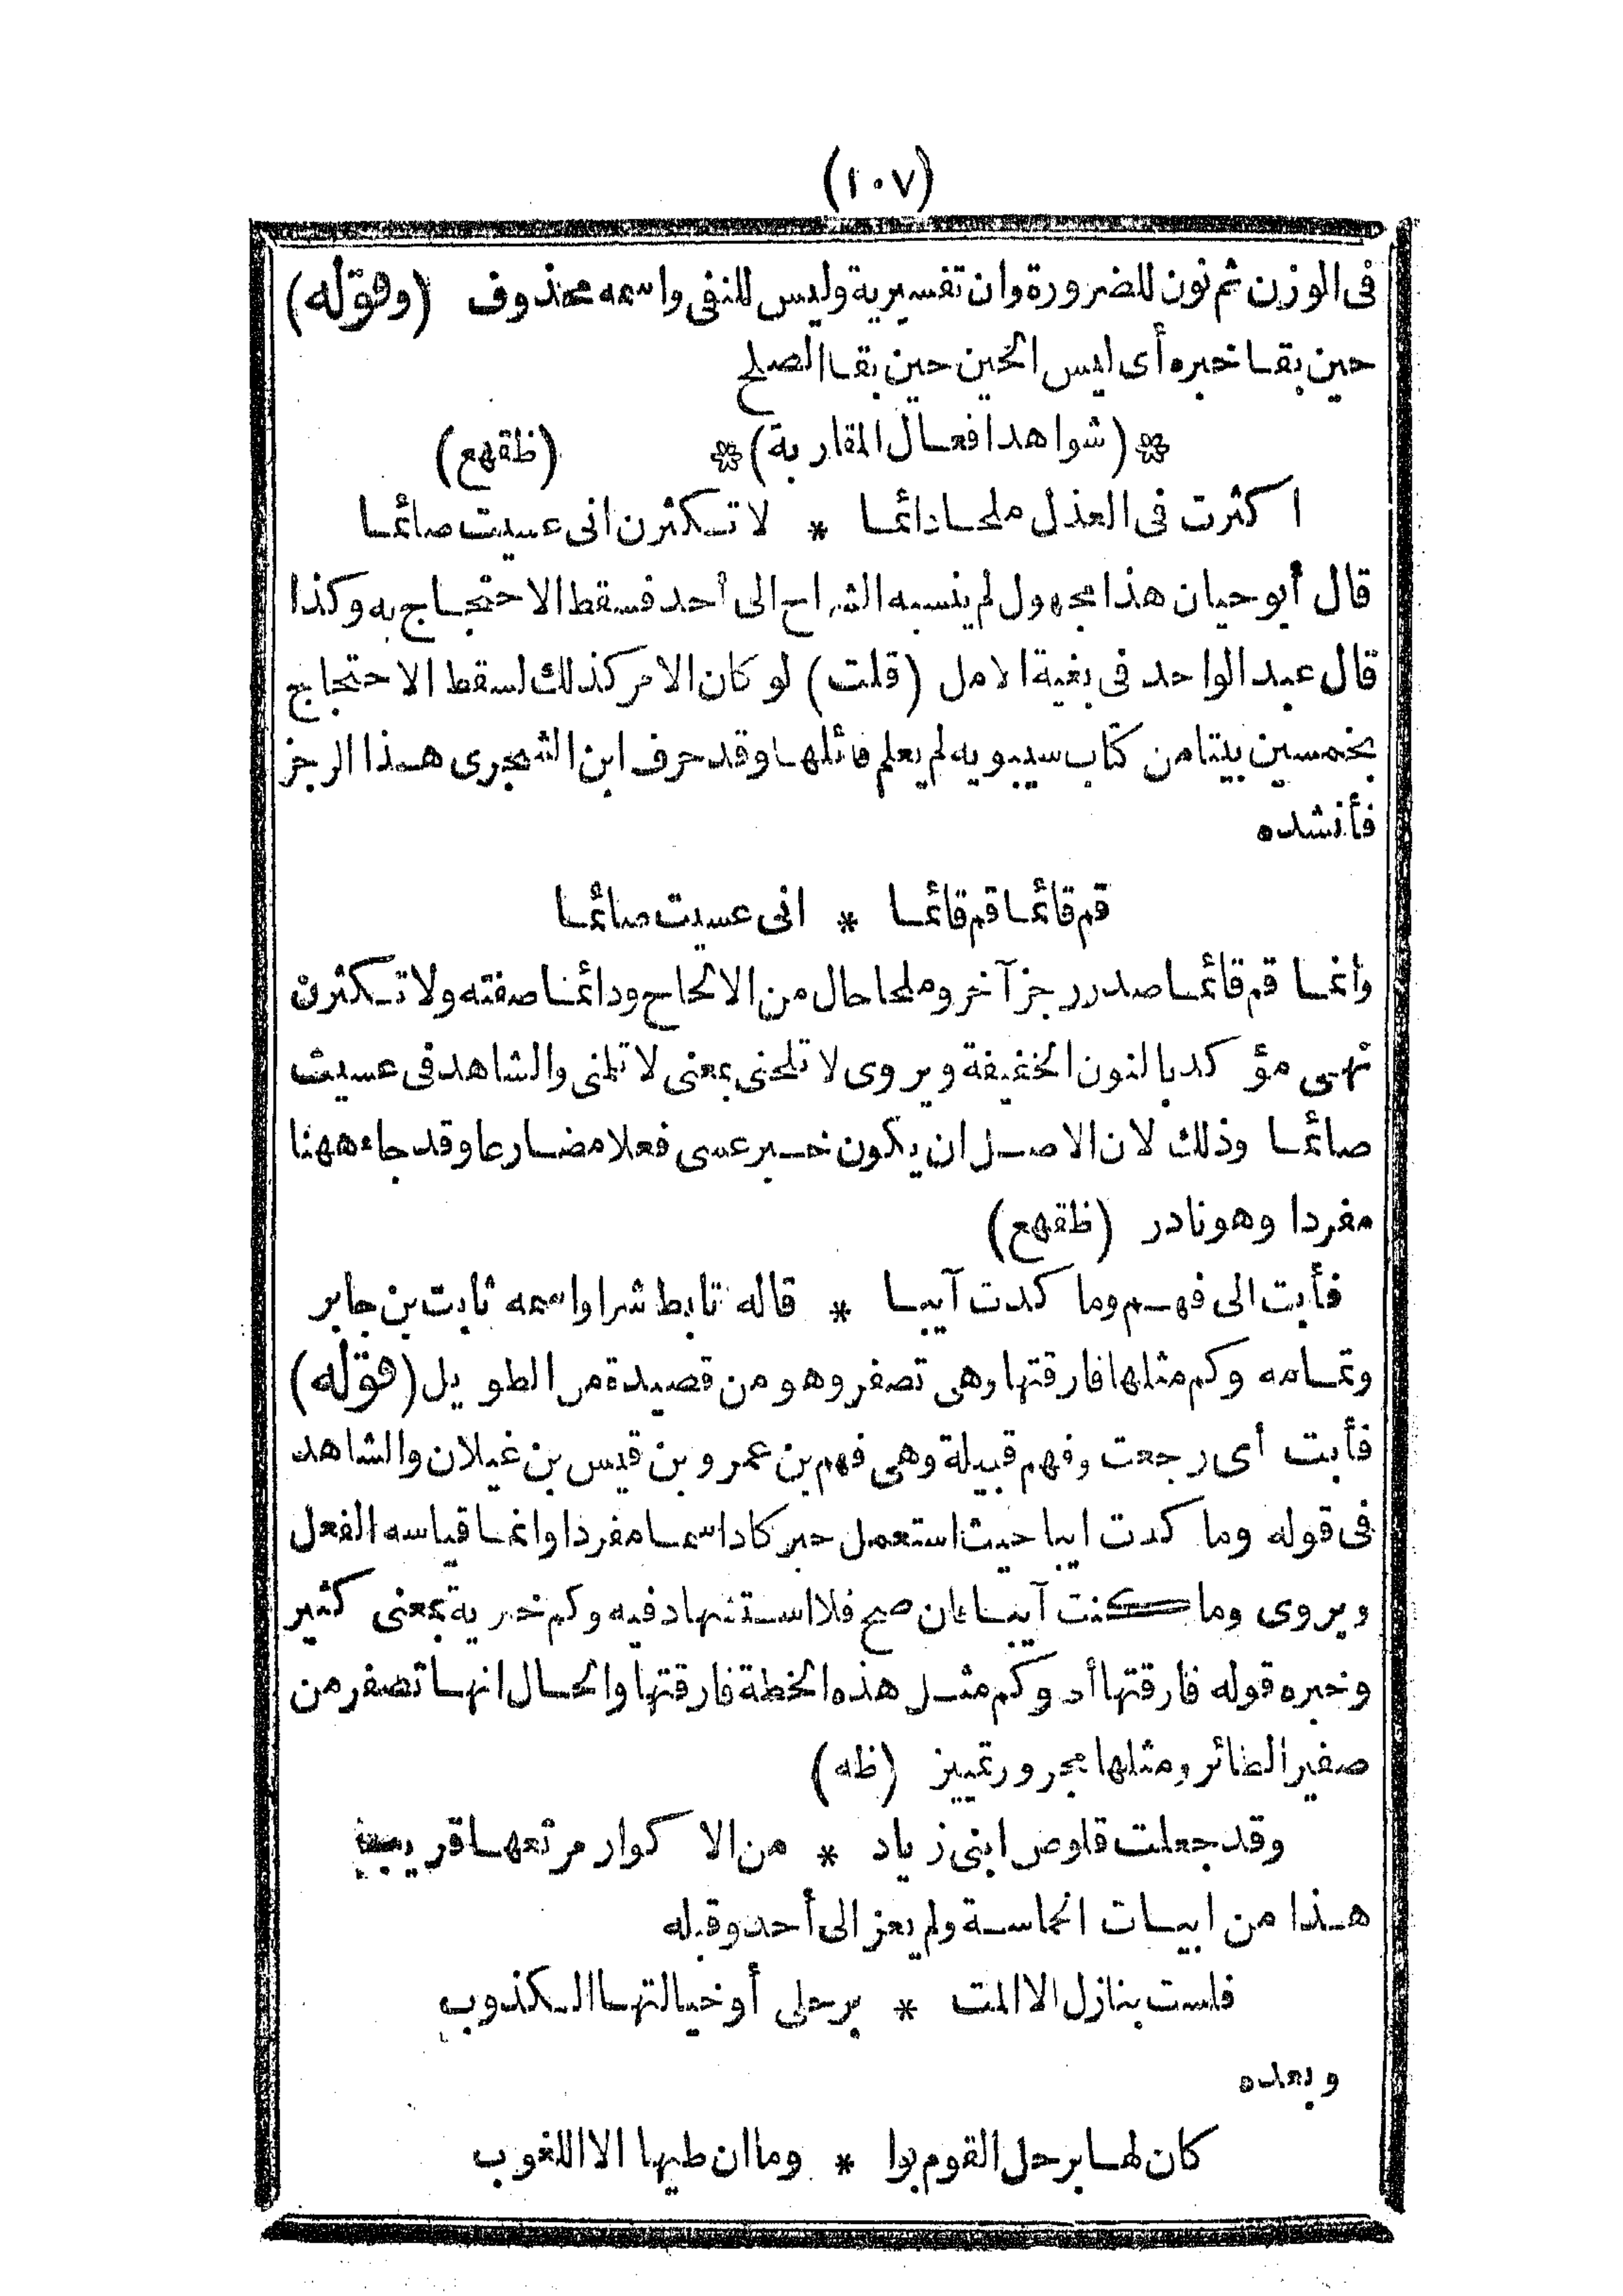 (١٠٧)
فى الوزن ثم نون للضرورة وان تفسيرية وليس للنفى واسمه محذوف (وقوله)
حين بقا خبره أى ليس الحين حين بقا الصلح
❊ (شواهد افعال المقاربة) ❊ (ظقهع)
اكثرت فى العذل ملحا دائما * لا تكثرن انى عسيت صائما
قال أبو حيان هذا مجهول لم ينسبه الشراح الى أحد فسقط الاحتجاج به وكذا
قال عبد الواحد فى بغية الامل (قلت) لو كان الامر كذلك لسقط الاحتجاج
بخمسين بيتا من كتاب سيبويه لم يعلم قائلها وقد حرف ابن الشجرى هذا الرجز
فأنشده
قم قائما قم قائما * انى عسيت صائما
وانما قم قائما صدر رجز آخر وملحا حال من الالحاح ودائما صفته ولا تكثرن
نهى مؤكد بالنون الخفيفة ويروى لا تلحنى بمعنى لا تلمنى والشاهد فى عسيت
صائما وذلك لان الاصل ان يكون خبر عسى فعلا مضارعا وقد جاء ههنا
مفردا وهو نادر (ظقهع)
فأبت الى فهم وما كدت آيبا * قاله تابط شرا واسمه ثابت بن جابر
وتمامه وكم مثلها فارقتها وهى تصفر وهو من قصيدة من الطويل (قوله)
فأبت أى رجعت وفهم قبيلة وهى فهم بن عمرو بن قيس بن غيلان والشاهد
فى قوله وما كدت ايبا حيث استعمل خبر كاد اسما مفردا وانما قياسه الفعل
ويروى وما كنت آيبا فان صح فلا استشهاد فيه وكم خبرية بمعنى كثير
وخبره قوله فارقتها أى وكم مثل هذه الخطة فارقتها والحال انها تصفر من
صفير الطائر ومثلها مجرور تمييز (ظه)
وقد جعلت قلوص ابنى زياد * من الاكوار مرتعها قريب
هذا من ابيات الحماسة ولم يعز الى أحد وقبله
فلست بنازل الا المت * برحلى أو خيالتها الكذوب
وبعده
كان لها برحل القوم بوا * وما ان طبها الا اللغوب